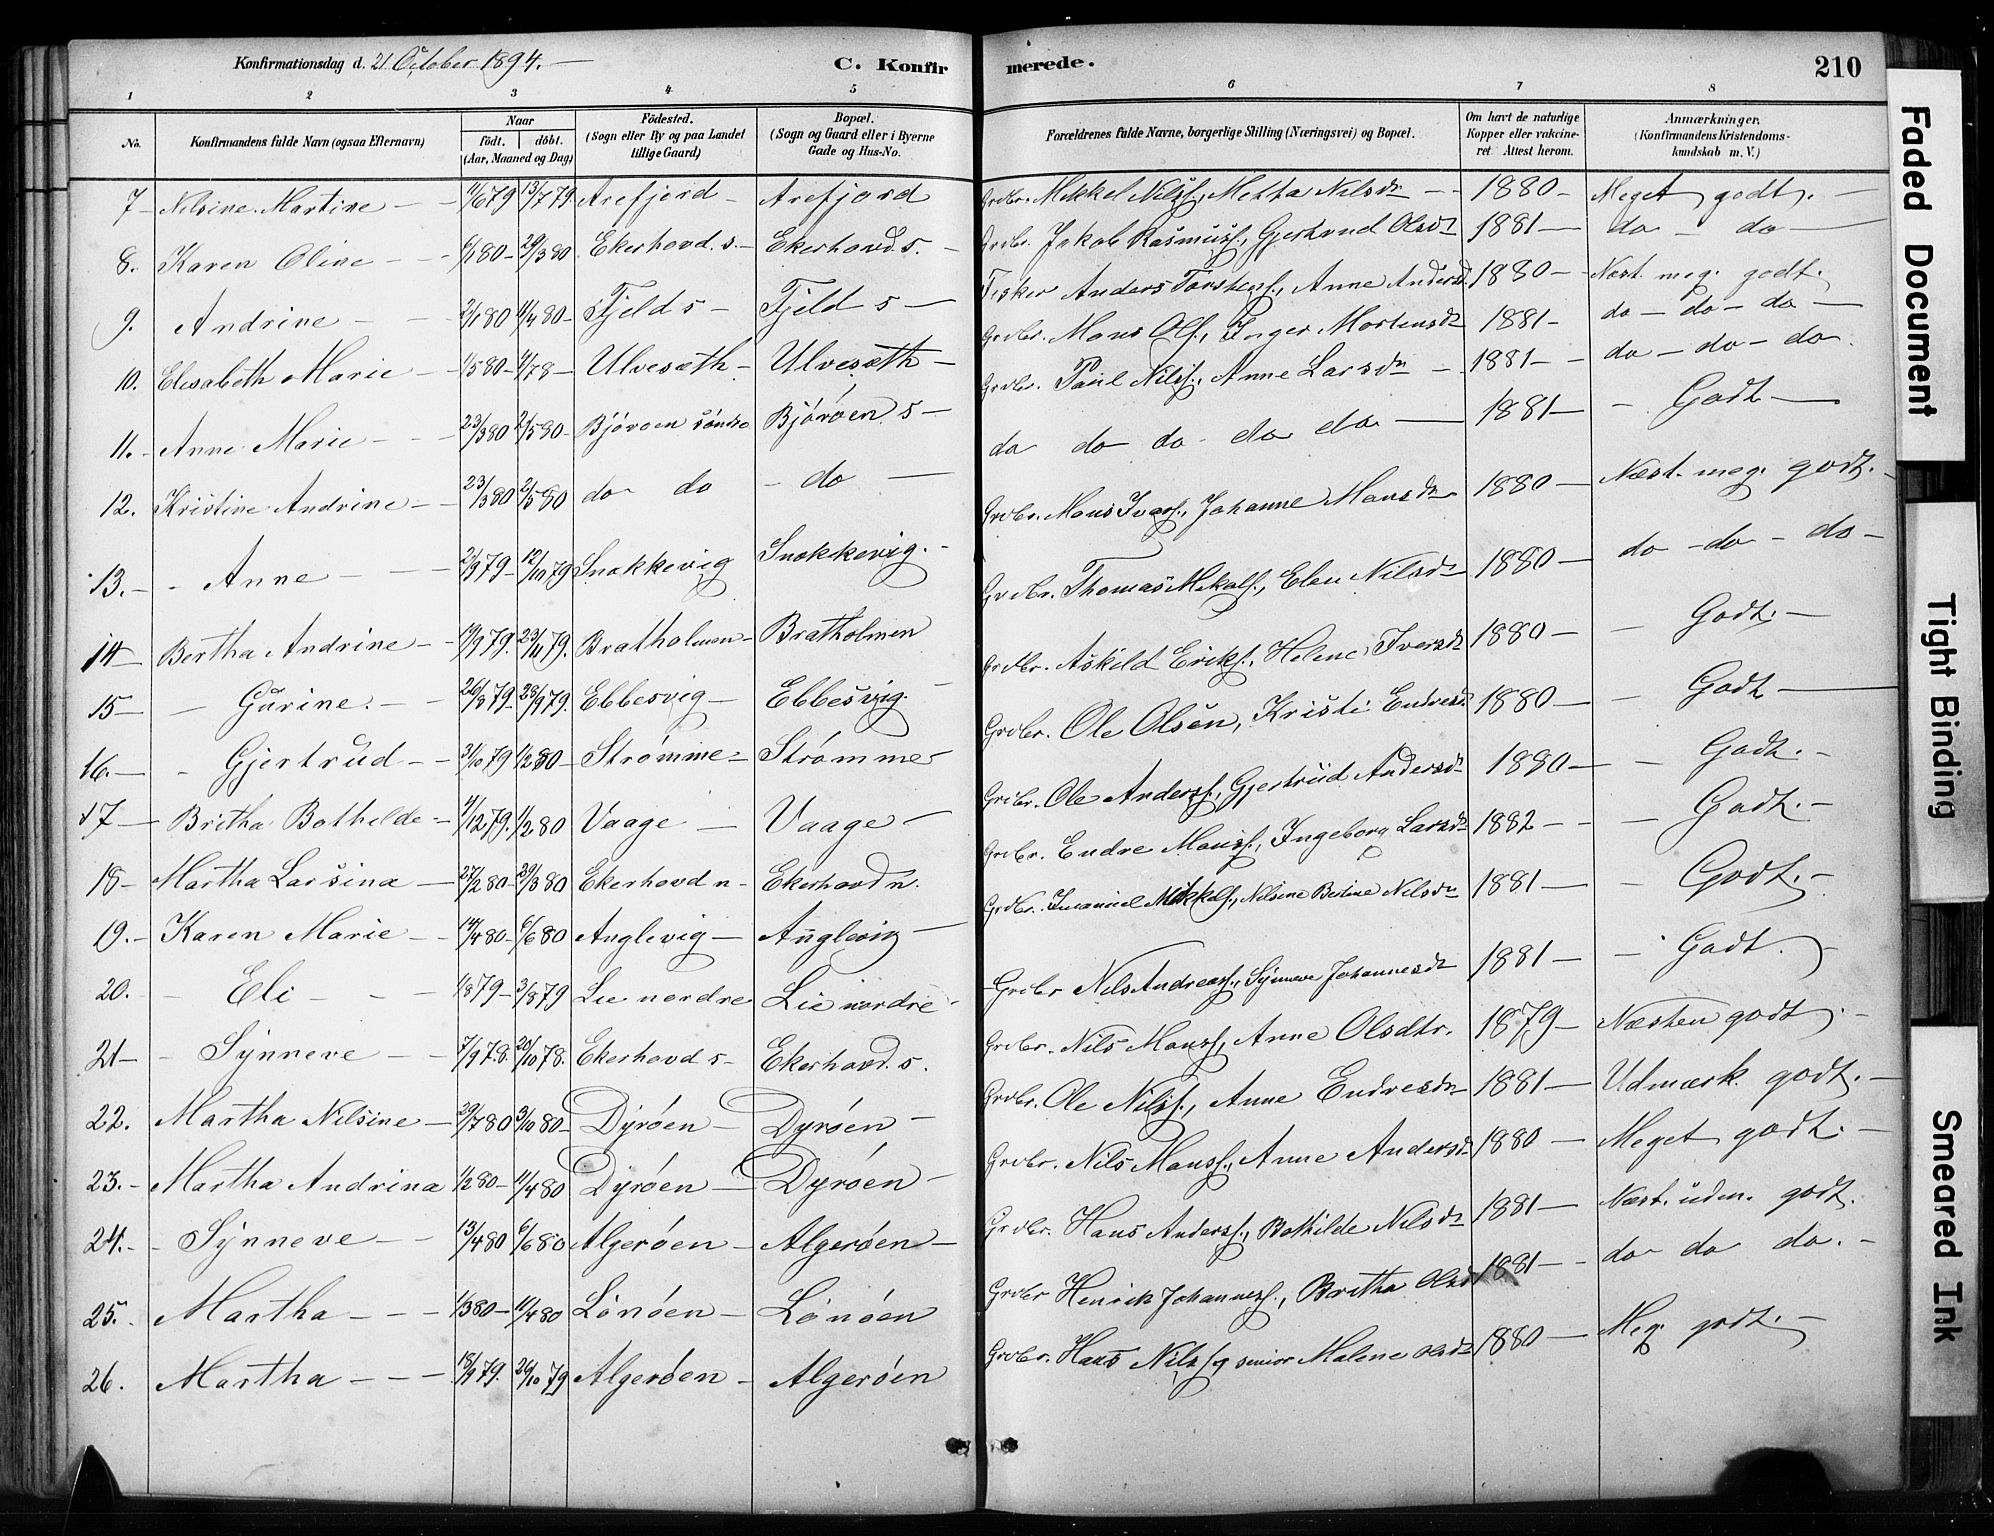 Konfirmationsdag d. 21 October 1894. — C. Konfirmerede. 210
1 2 3 4 5 6 7 8
No. Konfirmandens fulde Navn (ogsaa Efternavn) Naar födt. döbt. (Aar, Maaned og Dag) Födested. (Sogn eller By og paa Landet tillige Gaard) Bopæl. (Sogn og Gaard eller i Byerne Gade og Hus-No. Forældrenes fulde Navne, borgerlige Stilling (Næringsvei) og Bopæl. Om havt de naturlige Kopper eller vakcineret. Attest herom. Anmærkninger. (Konfirmandens Kristendomskundskab m. V.)
7 Nilsine Martine 11/6 79 13/7 79 Arefjord Arefjord Grdbr. Mikkel Nilss., Metta Nilsdr 1880 Meget godt.
8. Karen Oline 6/1 80 29/3 80 Ekerhovd s. Ekerhovd s. Grdbr. Jakob Rasmuss., Gjertrud Olsdr 1881 do do
9. Andrine 2/1 80 4/4 80 Fjeld s Fjeld s Fisker Anders Torstens., Anne Andersd. 1880 Næst. meg. godt.
10. Elisabeth Marie 1/5 80 Ulvesæth Ulvesæth Grdbr. Mons Ols., Inger Mortensdr 1881 do do do
11. Anne Marie 23/3 80 2/5 80 Bjøroen søndre Bjøröen s Grdbr. Paul Nilss., Anne Larsdr 1881 do do do.
12. Kristine Andrine 23/3 80 2/5 80 do do do do do do do do. 1881 Godt
13. Anne 2/9 79 12/10 79 Snekkevig Snekkevig. Grdbr. Mons Ivars., Johanne Monsdr 1880 Næst. meg. godt.
14 Bertha Andrine 19/9 79. 23/11 79. Bratholmen Bratholmen Grdbr. Thomas Mikals., Elen Nilsdr 1880 do do do
15 Gurine. 26/8 79 28/9 79. Ebbesvig Ebbesvig. Grdbr. Askild Eriks., Helene Iversdr 1880 Godt.
16. Gjertrud 31/10 79 1/2 80 Strømme Strømme Grdbr. Ole Olsen, Kristi Endresd. 1880 Godt
17 Britha Bothilde 4/12 79. 1/2 80 Vaage Vaage Grdbr. Ole Anderss., Gjertrud Andersdr 1880 Godt.
18 Martha Larsina 27/2 80 29/3 80 Ekerhovd n Ekerhovd n. Grdbr. Endre Monss., Ingeborg Larsdr 1882 Godt.
19. Karen Marie 14/4 80 6/6 80 Anglevig Anglevig Grdbr. Imanuel Mikkels., Nilsine Bertine Nilsdr 1881 Godt.
20. Eli 1/8 79 3/8 79 Lie nordre Lie nordre Grdbr Nils Andreass., Synneve Johannesdr 1881 Godt.
21 Synneve 7/9 78. 20/10 78. Ekerhovd s Ekerhovd. s. Grdbr. Nils Monss., Anne Olsdtr. 1879 Næsten godt.
22. Martha Nilsine 29/7 80 3/10 80 Dyröen Dyröen Grdbr. Ole Nilss., Anne Endresdr 1881 Udmærk. godt.
23. Martha Andrina 1/2 80 11/4 80 Dyröen Dyröen Grdbr. Nils Monss., Anne Andersdr 1880 Meget godt.
24. Synneve 13/4 80 6/6 80 Algeröen Algeröen Grdbr. Hans Anderss., Bothilde Nilsdr 1881 Næst. udm. godt.
25. Martha 1/3 80 11/4 80 Lönöen Lönöen Grdbr Henrik Johanness., Britha Olsdr 1881 do do do.
26. Martha 18/9 79. 26/10 79 Algeröen Algeröen Grdbr. Hans Nilss. senior Malene Olsdr 1880 Meg. godt.
Faded Document
Tight Binding
Smeared Ink